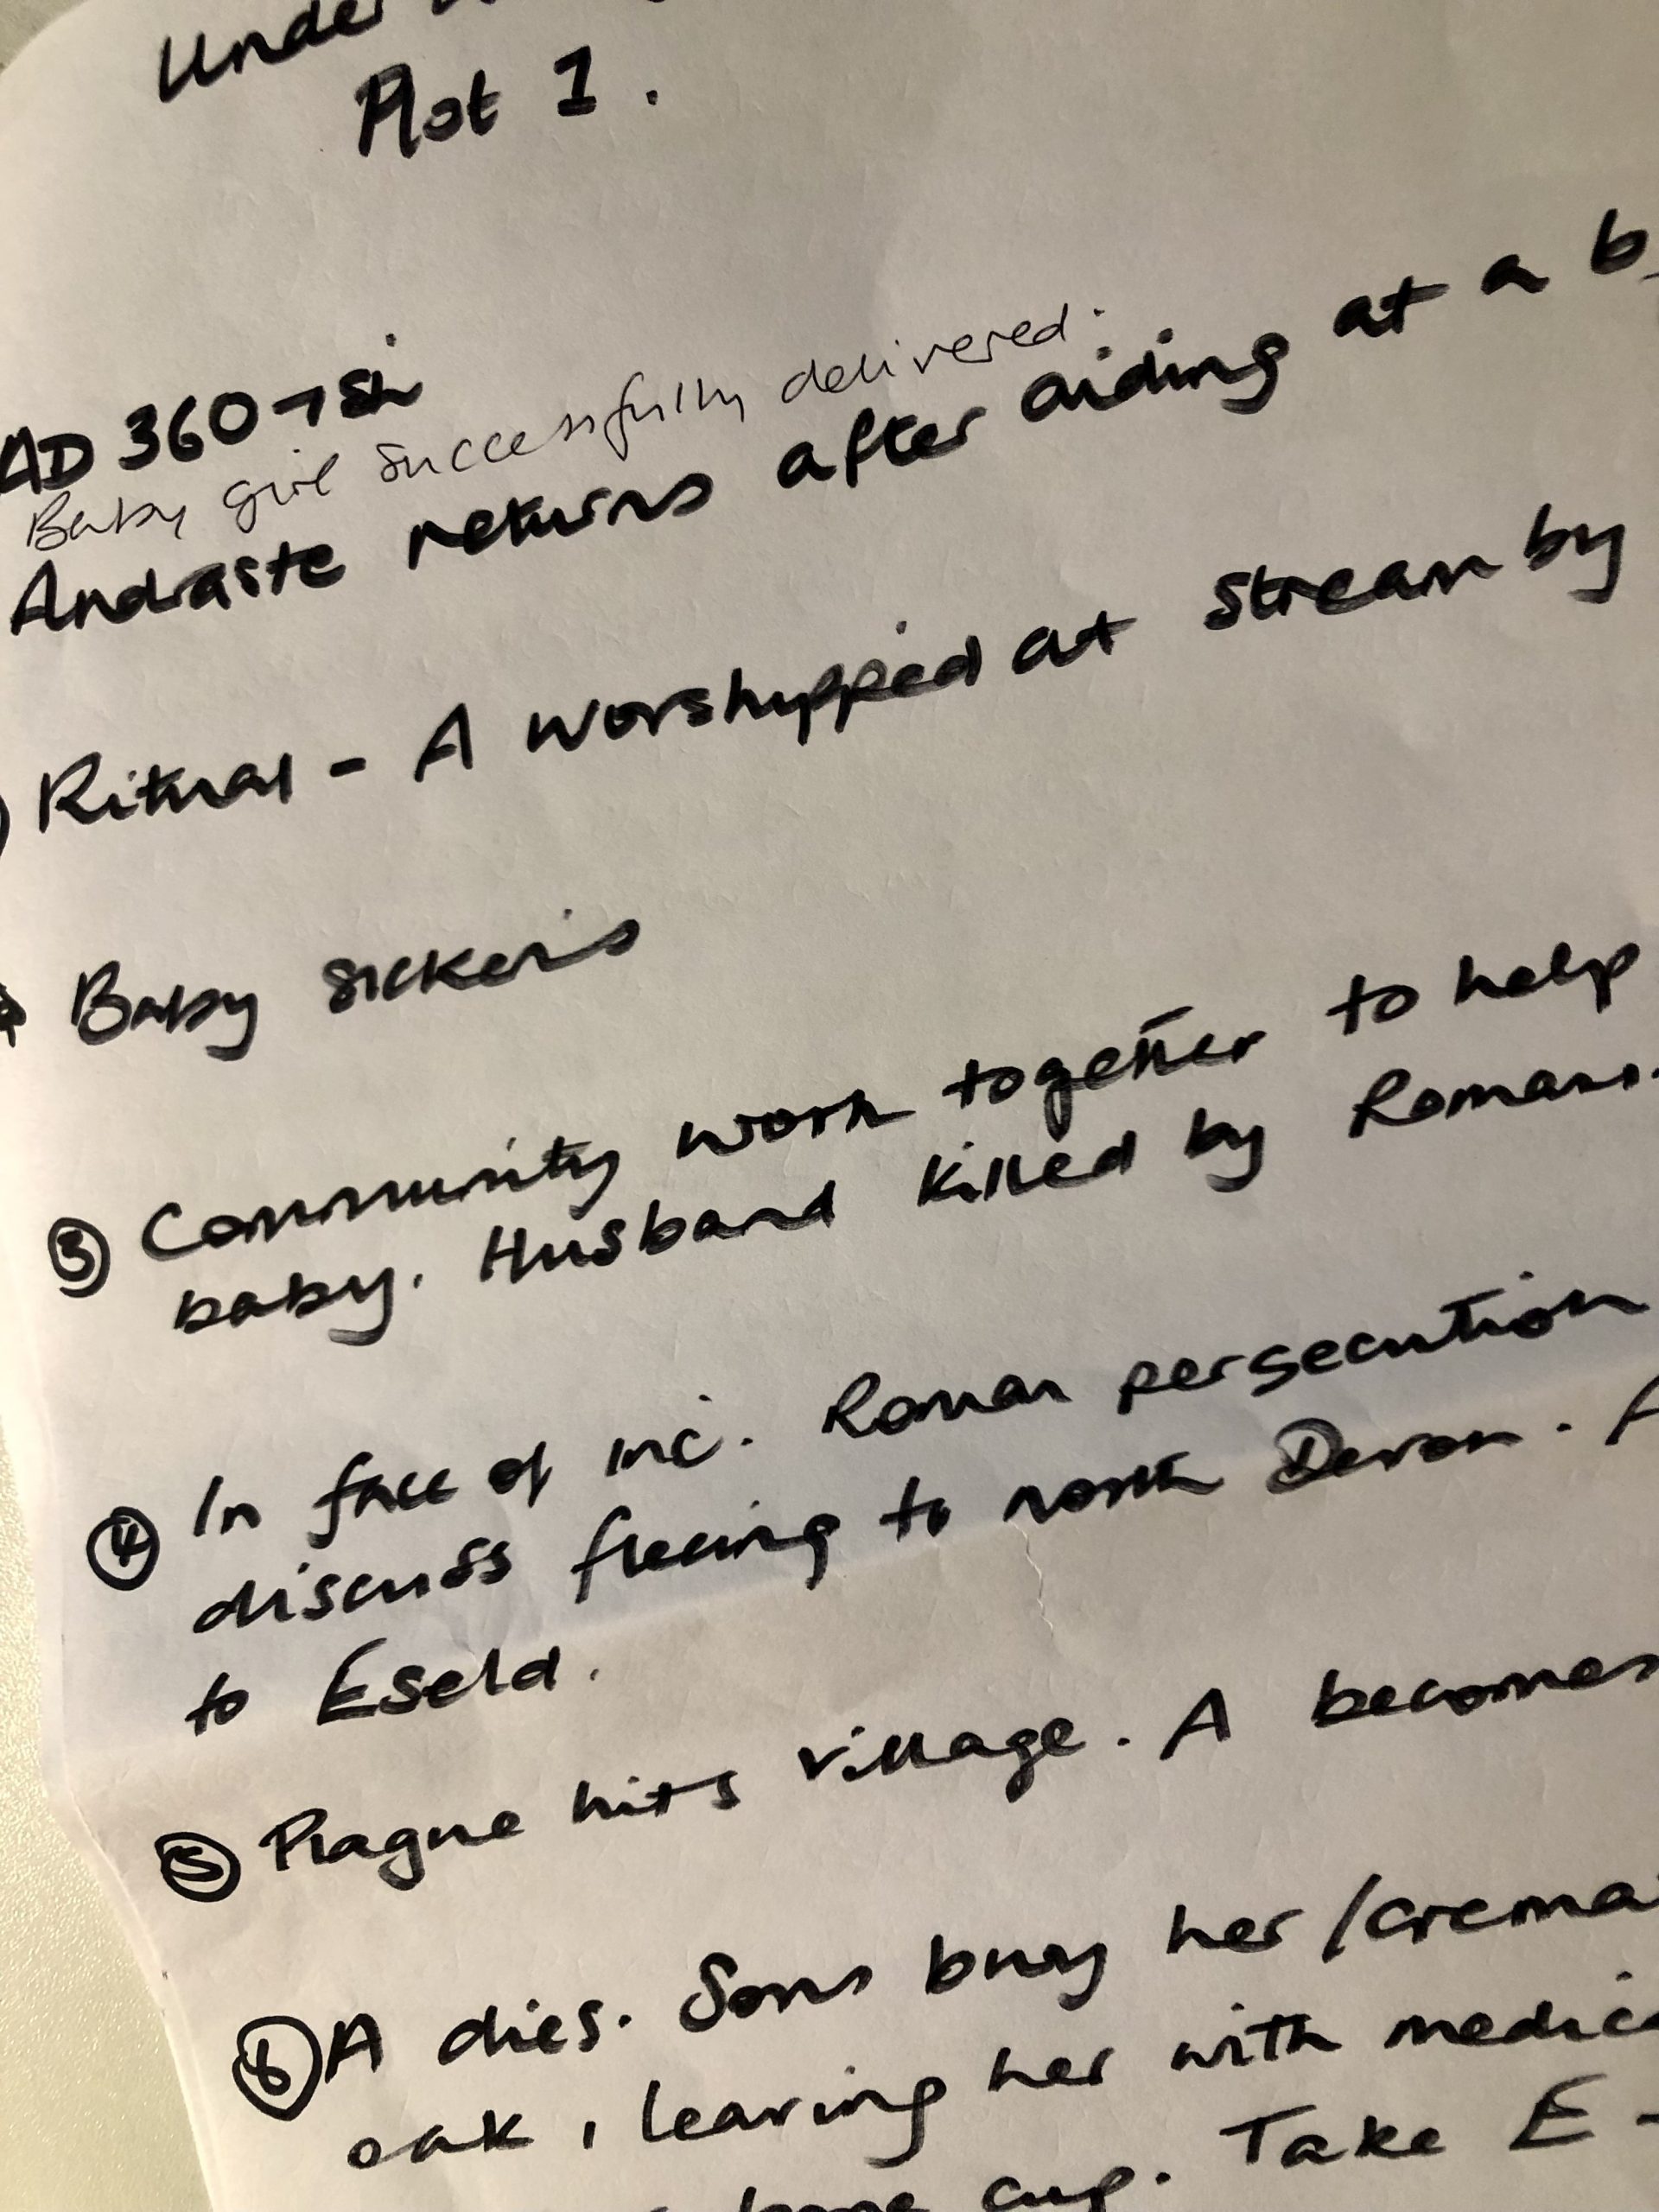 Under
Plot 1.
AD 360
Baby girl successfully delivered.
Andraste returns after aiding at a
Ritual - A worshipped at stream by
Baby sickens
③ Community work together to help
baby. Husband killed by Romans.
④ In face of inc. Roman persecution
discuss fleeing to north Devon. A
to Eseld.
⑤ Plague hits village. A becomes
⑥ A dies. Sons bury her/
oak, leaving her with
cup. Take E -